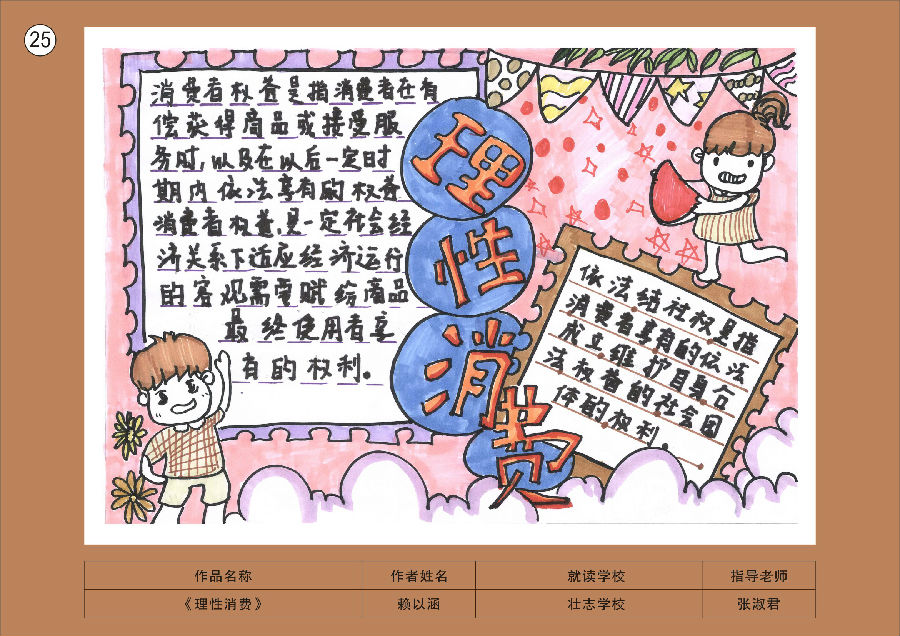 25
消费者权益是指消费者在有
偿获得商品或接受服
务时,以及在以后一定时
期内依法享有的权益
消费者权益,是一定社会经
济关系下适应经济运行
的客观需要赋给商品
最终使用者享
有的权利。
理性消费
依法结社权是指
消费者享有的依法
成立维护自身合
法权益的社会团
体的权利。
作品名称 作者姓名 就读学校 指导老师
《理性消费》 赖以涵 壮志学校 张淑君